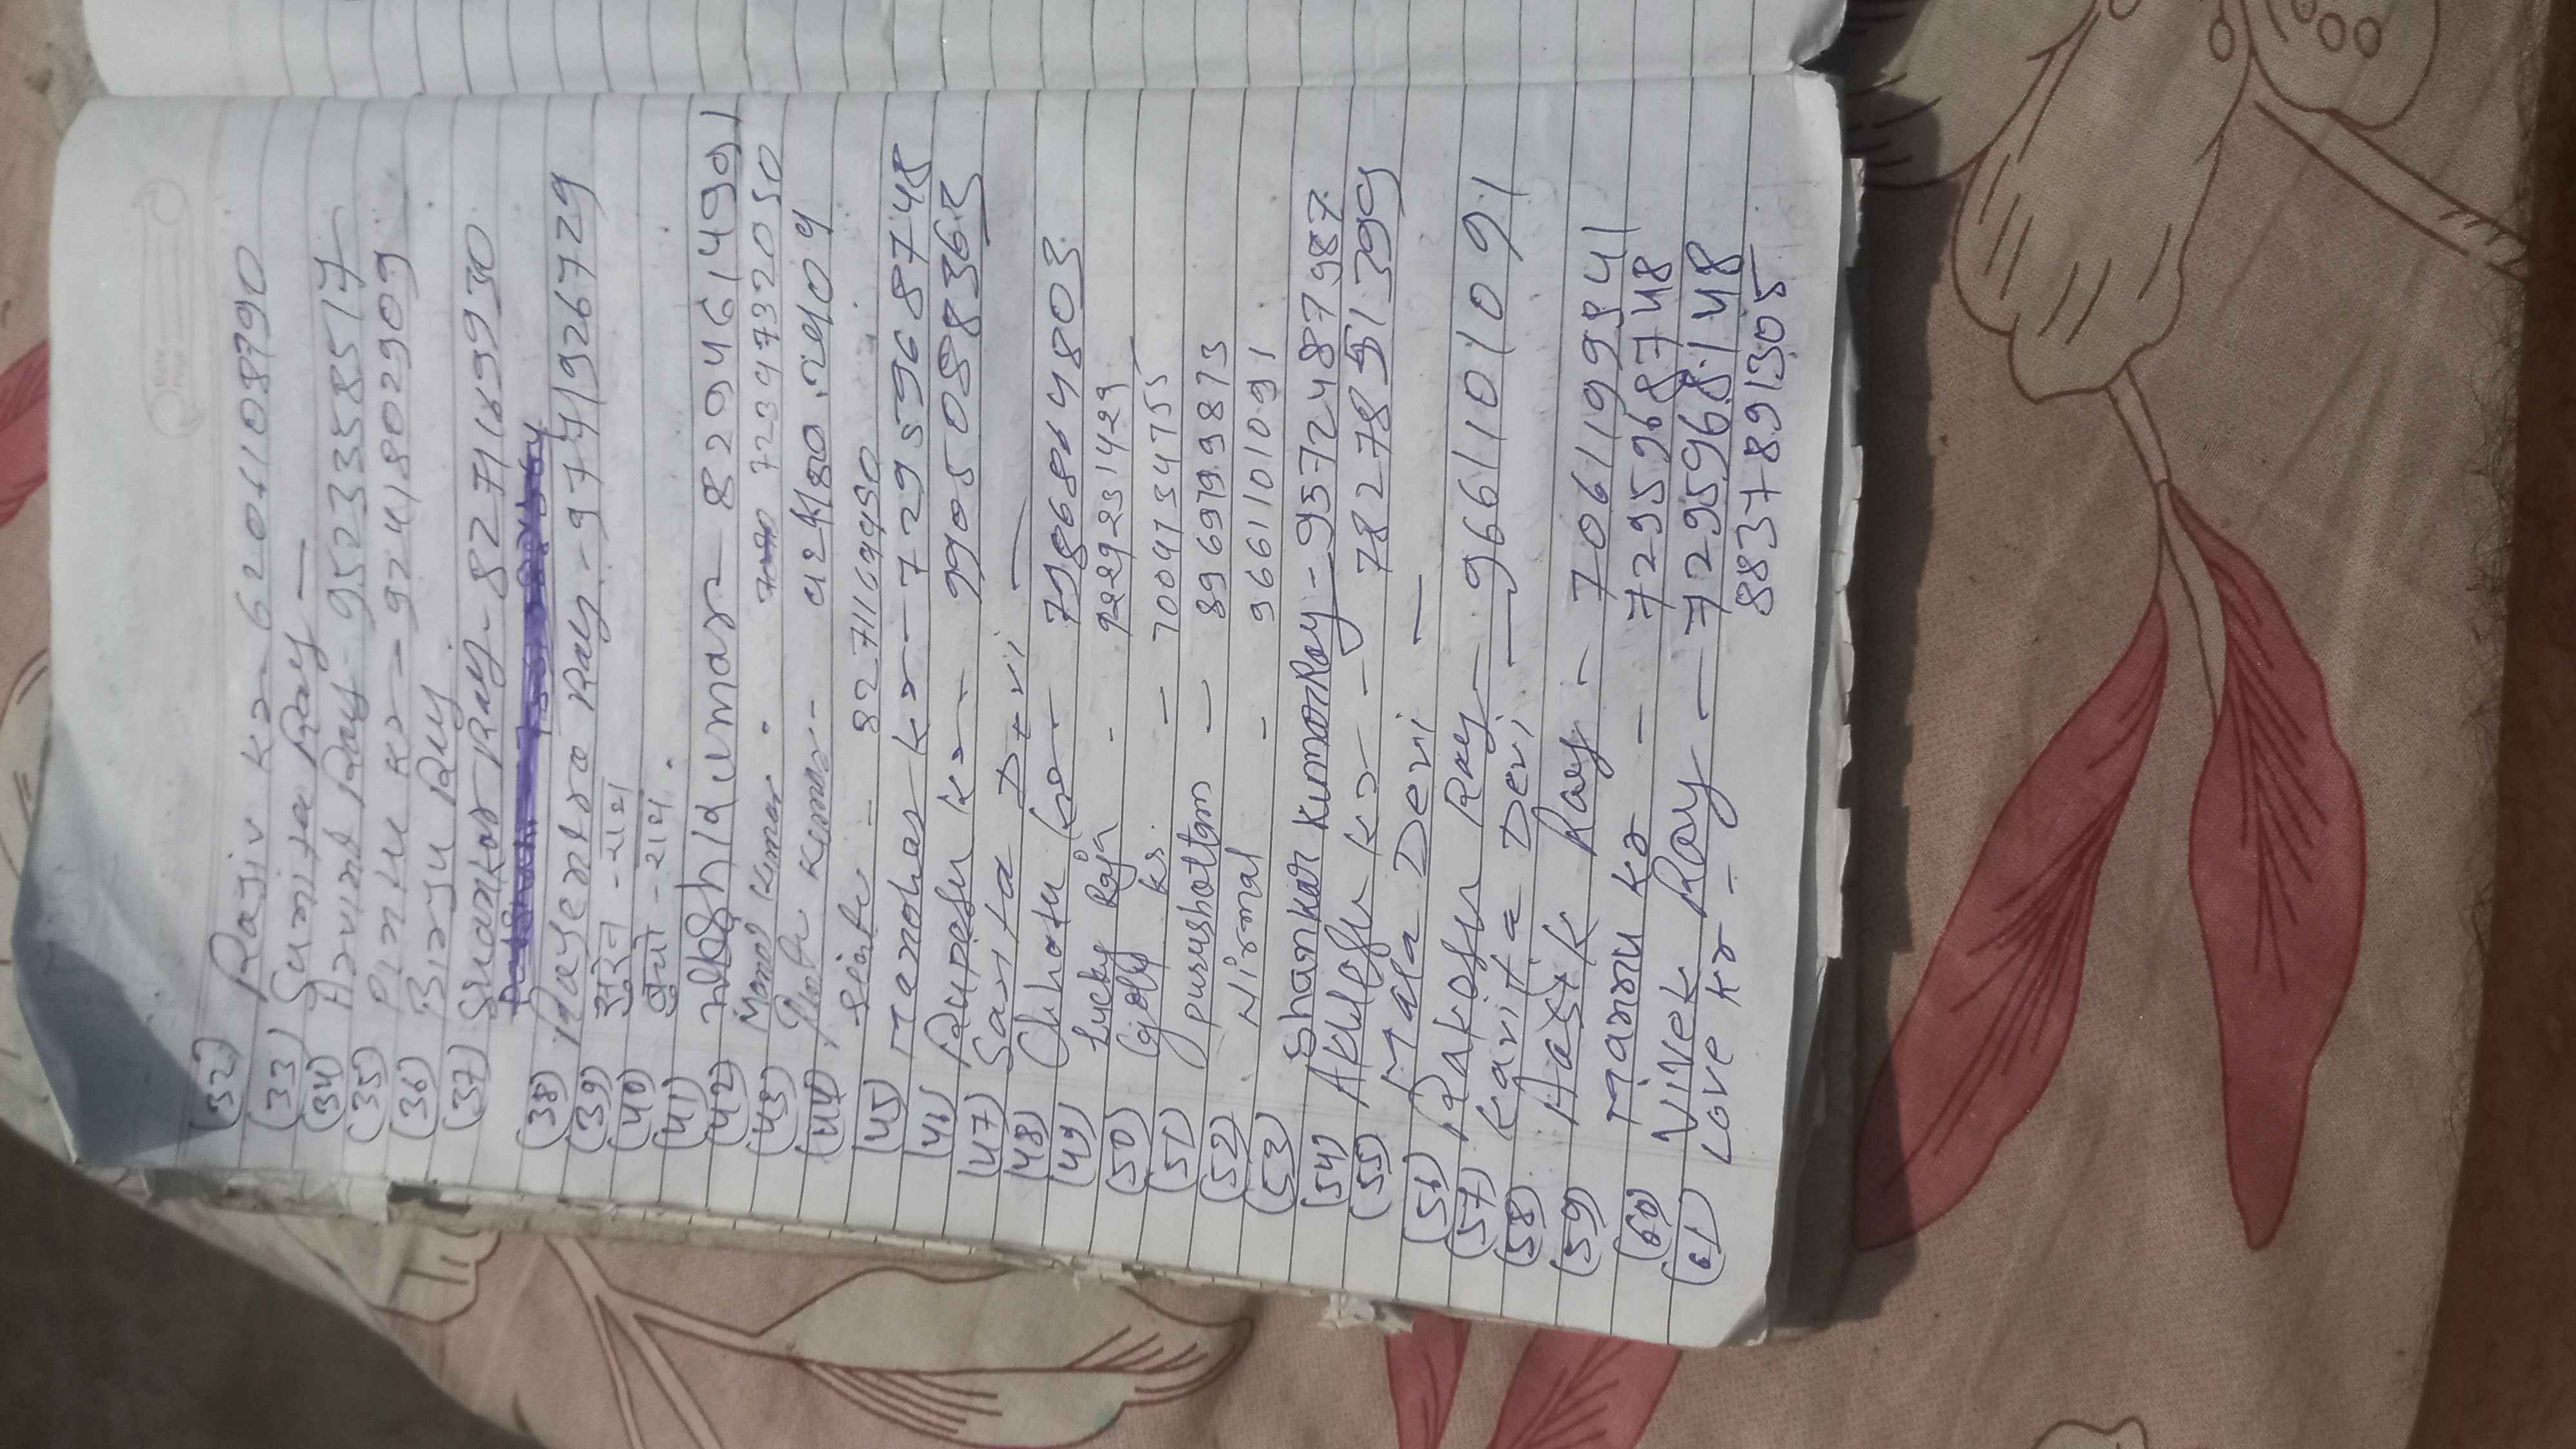 (32) Rajiv Kr - 6201108790
(33) Sumita Ray —
(34) Arvind Ray - 9523358517
(35) Pintu Kr - 9241802909
(36) Birju Ray
(37) Shankar Ray - 8271699930
(38) Rajendra Ray - 9741926729
(39) सुरेन - राय
(40) - राय
(41) Kumar - 8294614901
(42) Manoj Kumar - 72394732050
(43) Kumar -
(44) - 8271169950
(45) Manohar Kr - 7295968748
(46) Kr - 9905088365
(47) Sarita Devi —
(48) Chhotu Kr - 7986864803
(49) Lucky Raja -
(50) Golu Kr. - 7004734755
(51) purushottam - 8969799873
(52) Nirmal - 9661101091
(53) Shankar Kumar Ray - 9572487987
(54) Kr - 7827851399
(55) Mala Devi —
(56) Rakesh Ray - 9661101091
(57) Kavita Devi —
(58) Ray - 7061199841
(59) Mannu Kr - 7295968748
(60) Vivek Ray — 7295968148
(61) Love Kr - 8837891305